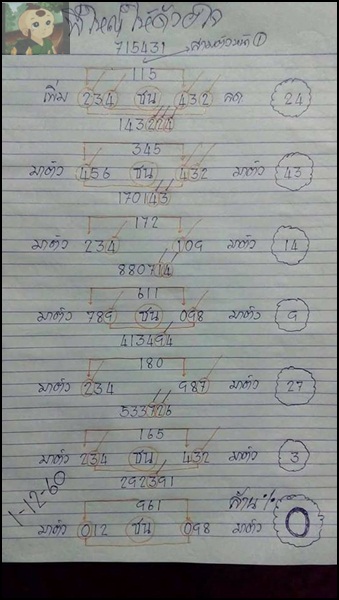 พี่ใหญ่ให้ตัวอย่าง
715431 สามตัวหน้า ①
115
เพิ่ม 234 ชน 432 ลด 24
143224
345
มาตัว 456 ชน 432 มาตัว 43
170143
172
มาตัว 234 109 มาตัว 14
880714
611
มาตัว 789 ชน 098 มาตัว 9
413494
180
มาตัว 234 987 มาตัว 27
533726
165
มาตัว 234 ชน 432 มาตัว 3
292391
1-12-60
961
มาตัว 012 ชน 098 มาตัว 0